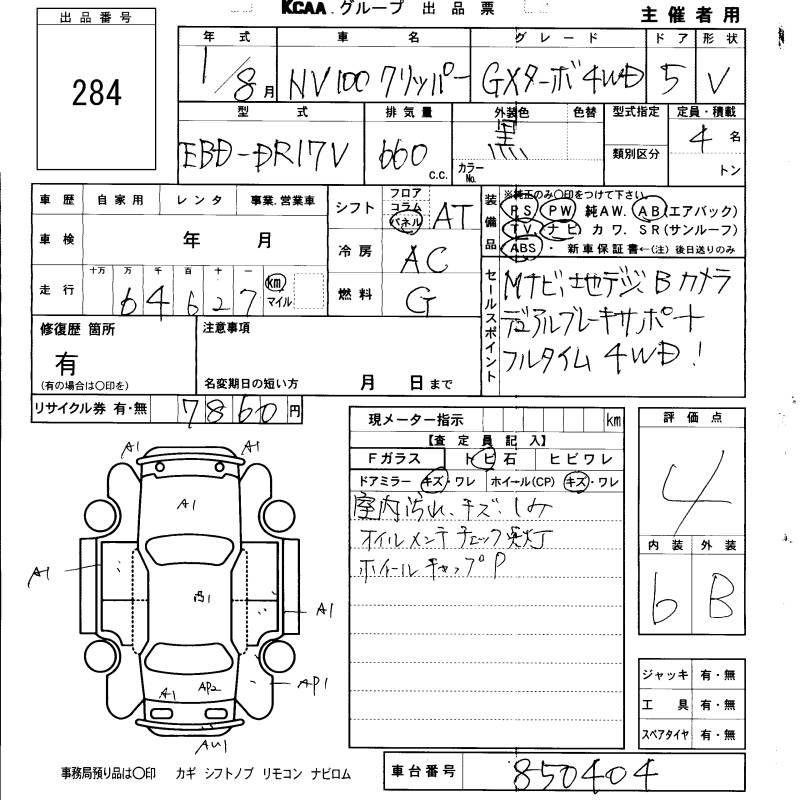 KCAA.グループ 出品票
主催者用
出品番号
284
年式 車名 グレード ドア 形状
1/8月 NV100クリッパー GXターボ4WD 5 V
型式 排気量 外装色 色替 型式指定 定員・積載
EBD-DR17V 660 C.C. 黒 カラーNo. 類別区分 4名
トン
車歴 自家用 レンタ 事業.営業車
車検 年 月
走行 十万 万 千 百 十 一
64627 km マイル
シフト フロア コラム パネル AT
冷房 AC
燃料 G
装備品 ※純正のみ〇印をつけて下さい。
PS PW 純AW. AB(エアバック)
TV. ナビ カワ. SR(サンルーフ)
ABS・ 新車保証書←(注)後日送りのみ
セールスポイント
Mナビ、地デジ、Bカメラ
デュアルブレーキサポート
フルタイム 4WD!
修復歴 箇所
有
(有の場合は〇印を)
注意事項
名変期日の短い方 月 日まで
リサイクル券 有・無 7860円
現メーター指示 km
【査定員記入】
Fガラス トビ石 ヒビワレ
ドアミラー キズ・ワレ ホイール(CP) キズ・ワレ
室内汚れ、キズ、しみ
オイルメンテチェック灯
ホイールキャップP
評価点
4
内装 外装
6 B
ジャッキ 有・無
工具 有・無
スペアタイヤ 有・無
A1 A1
A1
A1
A1
AP1
A1 AP2
AU1
事務局預り品は〇印 カギ シフトノブ リモコン ナビロム
車台番号 850404